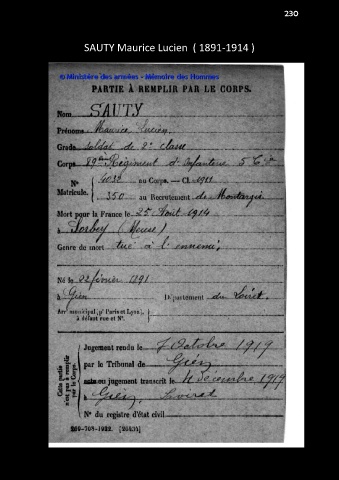 230
SAUTY Maurice Lucien ( 1891-1914 )
© Ministère des armées - Mémoire des Hommes
PARTIE À REMPLIR PAR LE CORPS.
Nom SAUTY
Prénoms Maurice Lucien
Grade soldat de 2e classe
Corps 89me Régiment d'Infanterie 5 Cie
N° 4032 au Corps. — Cl. 1911
Matricule. 350 au Recrutement de Montargis
Mort pour la France le 25 Août 1914
à (Meuse)
Genre de mort tué à l'ennemi
Né le 22 février 1891
à Gien Département du Loiret
Arr municipal (pr Paris et Lyon),
à défaut rue et N°.
Cette partie
n'est pas à remplir
par le Corps.
Jugement rendu le 7 Octobre 1919
par le Tribunal de Gien
acte ou jugement transcrit le 4 décembre 1919
à Gien, Loiret
N° du registre d'état civil
269-708-1922. [26434]